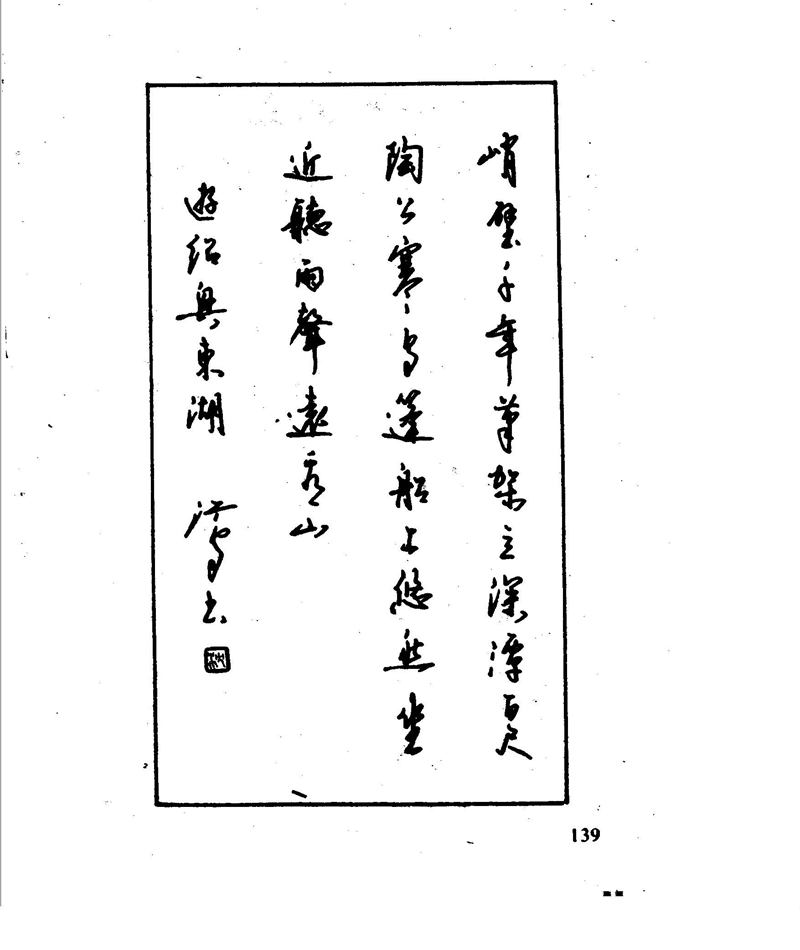 峭壁千年筆架立深潭百尺
陶公寒乌篷船上悠然坐
近聽雨聲遠看山
遊绍興東湖 书
139